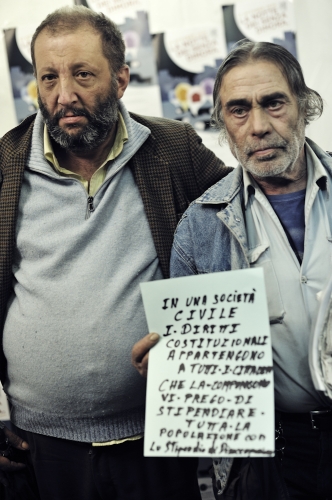 IN UNA SOCIETÀ
CIVILE
I. DIRITTI
COSTITUZIONALI
APPARTENGONO
A TUTI-I-CITTADINI
CHE LA-COMPONGONO
VI-PREGO-DI
STIPENDIARE-
TUTTA-LA
POPOLAZIONE CON
Lo Stipendio di